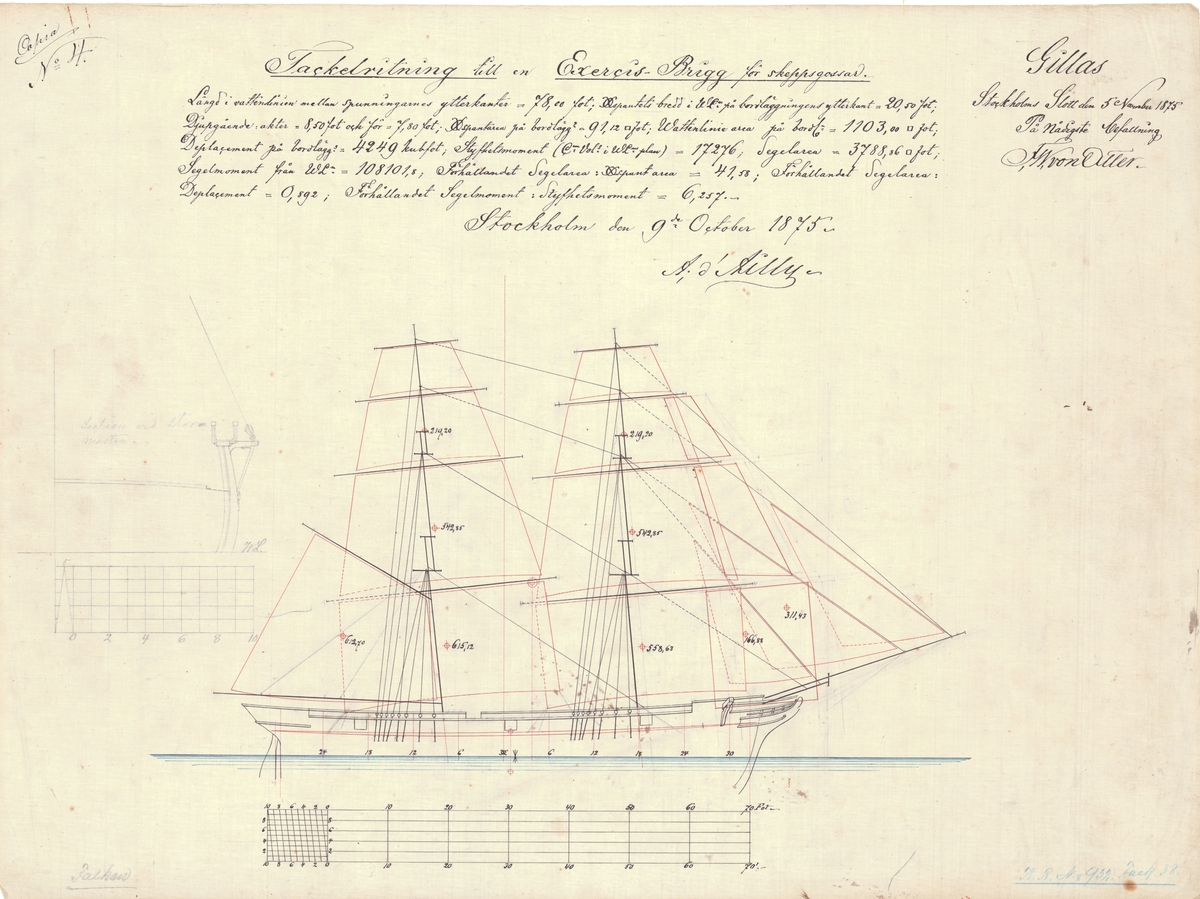 Copia
No 4.
Tackelritning till en Exercis-Brigg för skeppsgossar.
Längd i vattenlinien mellan spunningarnes ytterkanter = 78,00 fot; spantets bredd i WL. på bordläggningens ytterkant = 20,50 fot;
Djupgående: akter = 8,50 fot och för = 7,80 fot; spantarea på bordlägg. = 91,12 □ fot; Wattenlinie area på bordl. = 1103,00 □ fot;
Deplacement på bordlägg. = 4249 kubfot; Styfhetsmoment (Cm Vol. i WL. plan) = 17276; Segelarea = 3788,36 □ fot;
Segelmoment från WL. = 108101,8; Förhållandet Segelarea : spantarea = 41,58; Förhållandet Segelarea :
Deplacement = 0,892; Förhållandet Segelmoment : Styfhetsmoment = 6,257.
Stockholm den 9de October 1875
A. d'Ailly
Gillas
Stockholms Slott den 5 November 1875
På Nådigste befallning
F.W. von Otter.
Section vid Stora
masten
219,20 219,20
542,85 542,85
WL
311,43
612,70 615,12 558,63 166,88
0 2 4 6 8 10
24 18 12 6 6 12 18 24 30
10 8 6 4 2 0 10 20 30 40 50 60 70 Fot
8 6 4 2
8 6 4 2
10 8 6 4 2 0 10 20 30 40 50 60 70'
Falken
K. R. No 932.